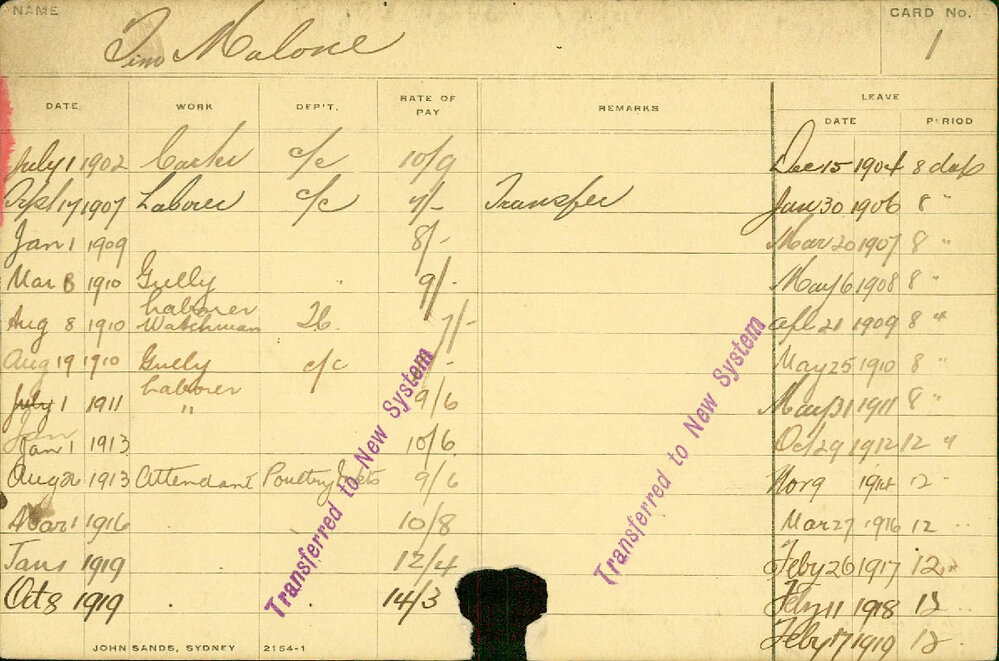 NAME
CARD No.
Tim Malone
1
DATE WORK DEP'T. RATE OF PAY REMARKS LEAVE
DATE PERIOD
July 1 1902 Carter c/c 10/9 Dec 15 1904 8 days
Sept 17 1907 Laborer c/c 7/- Transfer Jan 30 1906 8 "
Jan 1 1909 8/- Mar 20 1907 8 "
Mar 8 1910 Gully Laborer " 9/- May 6 1908 8 "
Aug 8 1910 Watchman 26 7/- Apl 21 1909 8 "
Aug 19 1910 Gully Laborer c/c May 25 1910 8 "
July 1 1911 " 9/6 May 31 1911 8 "
Jan 1 1913 10/6 Oct 29 1912 12 "
Aug 26 1913 Attendant Poultry 9/6 Nov 9 1914 12 "
Mar 1 1916 10/8 Mar 27 1916 12 "
Jan 1 1919 12/4 Feby 26 1917 12 "
Oct 8 1919 14/3 Feby 11 1918 12 "
Feby 17 1919 12 "
Transferred to New System
Transferred to New System
JOHN SANDS, SYDNEY 2154-1